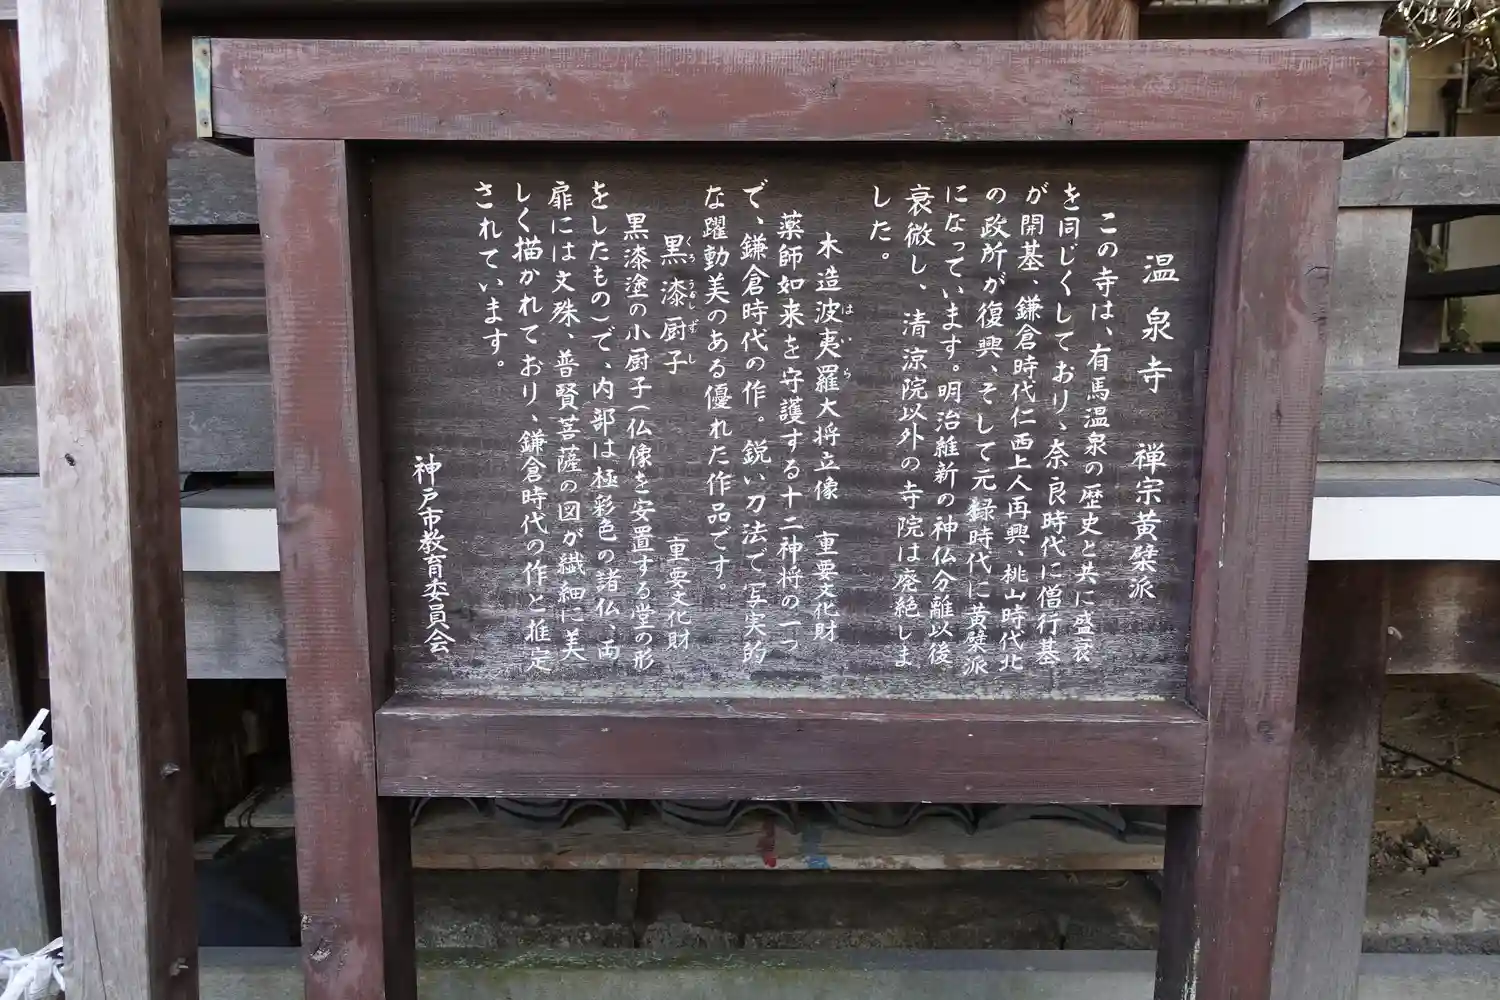 温泉寺　禅宗黄檗派
この寺は、有馬温泉の歴史と共に盛衰
を同じくしており、奈良時代に僧行基
が開基、鎌倉時代仁西上人再興、桃山時代北
の政所が復興、そして元録時代に黄檗派
になっています。明治維新の神仏分離以後
衰微し、清涼院以外の寺院は廃絶しま
した。
木造波夷羅大将立像　重要文化財
はいら
薬師如来を守護する十二神将の一つ
で、鎌倉時代の作。鋭い刀法で写実的
な躍動美のある優れた作品です。
黒漆厨子　重要文化財
くろうるしずし
黒漆塗の小厨子(仏像を安置する堂の形
をしたもの)で、内部は極彩色の諸仏、両
扉には文殊、普賢菩薩の図が繊細に美
しく描かれており、鎌倉時代の作と推定
されています。
神戸市教育委員会